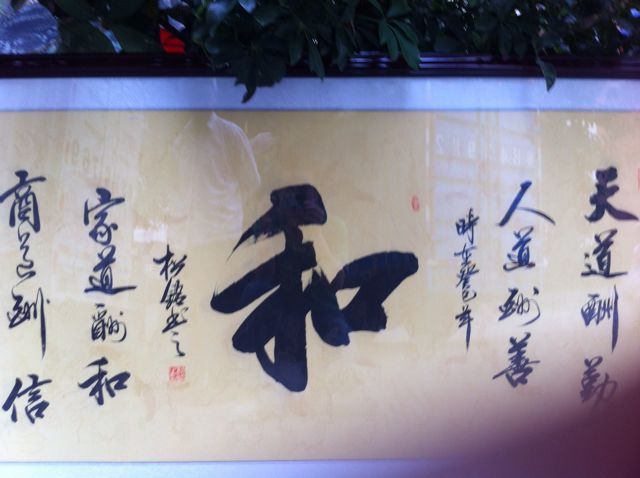 天道酬勤
人道酬善
時在癸巳年
和
家道酬和
商道酬信